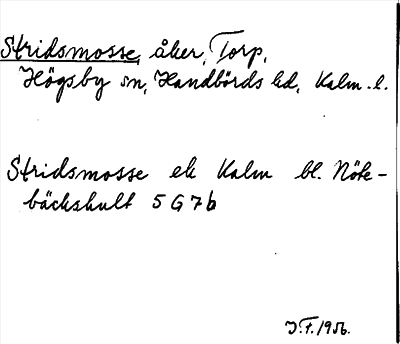 Stridsmosse, åker, Torp,
Högsby sn, Handbörds hd, Kalm. l.
Stridsmosse ek Kalm bl. Nöte-
bäckshult 5 G 7 b
J.F. 1956.